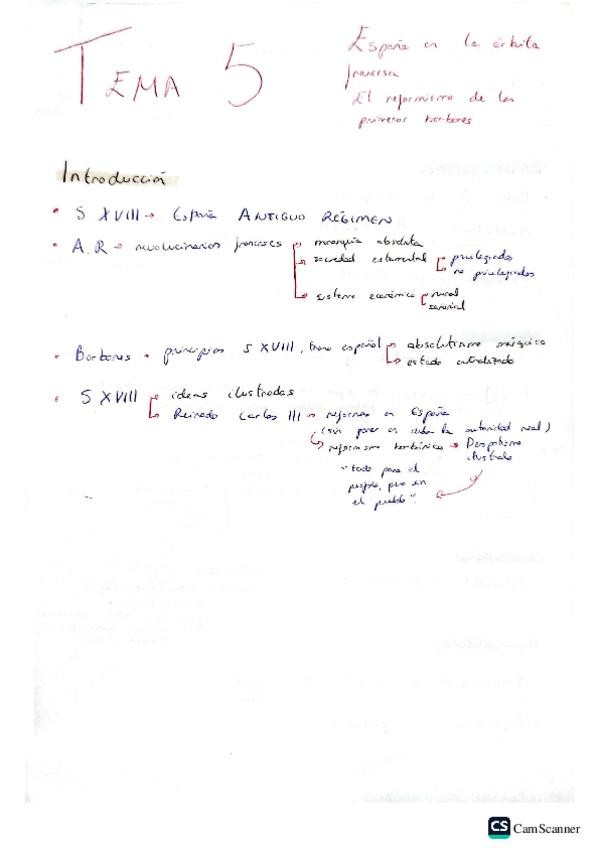 TEMA 5
España en la órbita
francesa
El reformismo de los
primeros borbones
Introducción
• S XVIII → España ANTIGUO RÉGIMEN
• A.R → revolucionarios franceses → monarquía absoluta
→ sociedad estamental → privilegiados
→ no privilegiados
→ sistema económico → rural
señorial
• Borbones → principios S XVIII, trono español → absolutismo monárquico
→ estado centralizado
• S XVIII → ideas ilustradas
→ Reinado Carlos III → reformas en España
(sin poner en duda la autoridad real)
→ reformismo borbónico → Despotismo
ilustrado
"todo para el
pueblo, pero sin
el pueblo".
CS CamScanner